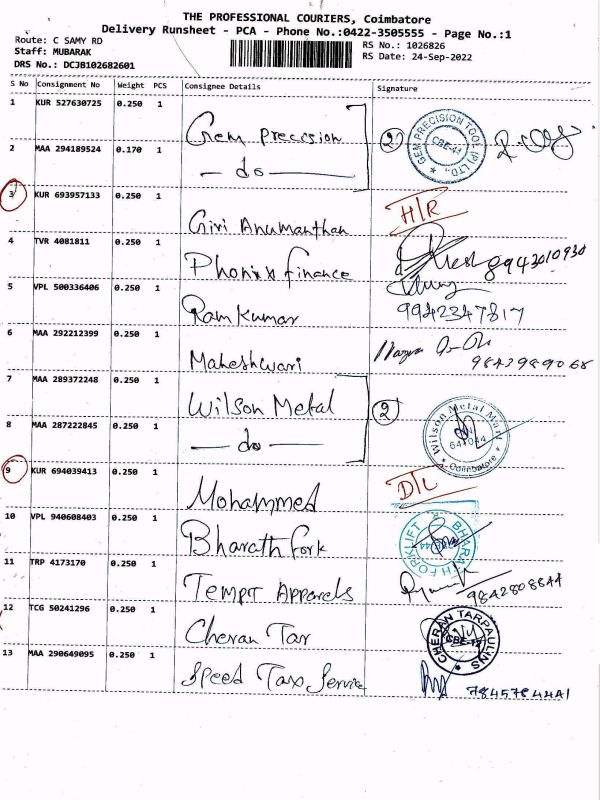 THE PROFESSIONAL COURIERS, Coimbatore
Delivery Runsheet - PCA - Phone No.:0422-3505555 - Page No.:1
Route: C SAMY RD
RS No.: 1026826
Staff: MUBARAK
RS Date: 24-Sep-2022
DRS No.: DCJB102682601
S No Consignment No Weight PCS Consignee Details Signature
1 KUR 527630725 0.250 1 Gem Precision 2 GEM PRECISION TOOL (P) LTD., CBE-44
2 MAA 294189524 0.170 1 — do —
3 KUR 693957133 0.250 1 Giri Anumanthan H/R
4 TVR 4081811 0.250 1 Phonixx finance 9943010930
5 VPL 500336406 0.250 1 Ramkumar 9942347817
6 MAA 292212399 0.250 1 Maheshwari 9843989068
7 MAA 289372248 0.250 1 Wilson Metal 2 Wilson Metal Mart 641044 Coimbatore
8 MAA 287222845 0.250 1 — do —
9 KUR 694039413 0.250 1 Mohammed D/L
10 VPL 940608403 0.250 1 Bharath fork BHARATH FORKLIFT
11 TRP 4173170 0.250 1 Tempt Apparels 9842808844
12 TCG 50241296 0.250 1 Cheran Tar CHERAN TARPAULINS
13 MAA 290649095 0.250 1 Speed Tax Service